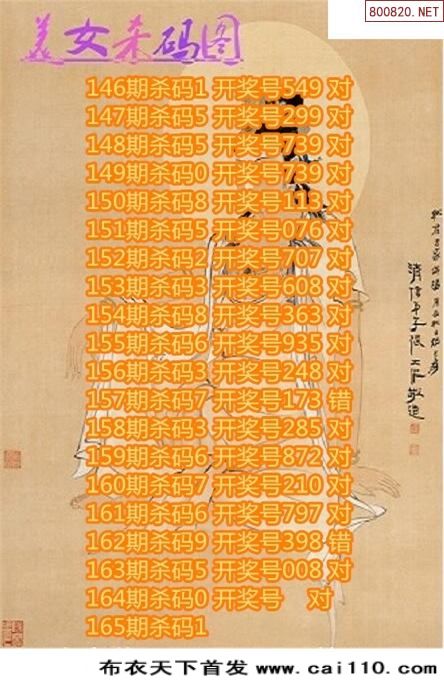 800820.NET
美女杀码图
146期杀码1 开奖号549 对
147期杀码5 开奖号299 对
148期杀码5 开奖号739 对
149期杀码0 开奖号739 对
150期杀码8 开奖号113 对
151期杀码5 开奖号076 对
152期杀码2 开奖号707 对
153期杀码3 开奖号608 对
154期杀码8 开奖号363 对
155期杀码6 开奖号935 对
156期杀码3 开奖号248 对
157期杀码7 开奖号173 错
158期杀码3 开奖号285 对
159期杀码6 开奖号872 对
160期杀码7 开奖号210 对
161期杀码6 开奖号797 对
162期杀码9 开奖号398 错
163期杀码5 开奖号008 对
164期杀码0 开奖号 对
165期杀码1
布衣天下首发 www.cai110.com